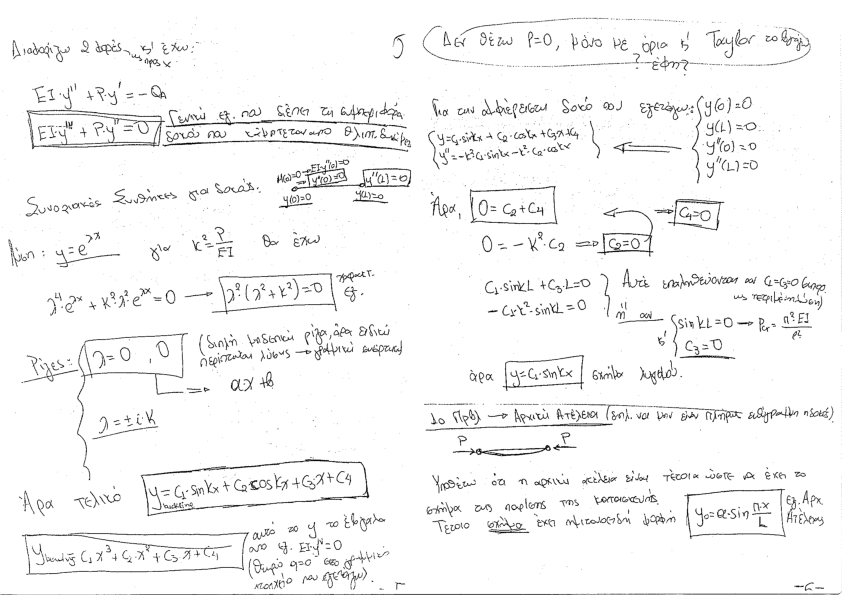 Διαφορίζω 2 φορές ως προς x κ' έχω:
EI·y''' + P·y' = -Q
EI·y'''' + P·y'' = 0
Γενική εξ. που διέπει τη συμπεριφορά
δοκού που κάμπτεται από θλιπ. δυνάμεις
Συνοριακές Συνθήκες για δοκάρι:
M(0)=0 → EI·y''(0)=0
⇒ y''(0)=0
y''(L)=0
y(0)=0
y(L)=0
Λύση: y=e^{λx} για k²=P/EI θα έχω
λ⁴·e^{λx} + k²·λ²·e^{λx}=0 → λ²·(λ²+k²)=0 χαρακτ. εξ.
Ρίζες: λ=0, 0
(διπλή μηδενική ρίζα, άρα ειδική
περίπτωση λύσης → γραμμική
⇒ α·x + β
λ=±i·k
Άρα τελικό y = C₁·sinkx + C₂·coskx + C₃·x + C₄
buckling
y bending C₁·x³ + C₂·x² + C₃·x + C₄
αυτό το y το έβγαλα
από εξ. EI·y''''=0
(Θεωρώ q=0 στο γραμμικό
στοιχείο που εξετάζω).
Δεν θέτω P=0, μόνο με όρια κ' Taylor το βγάζω
? έφη?
Για την αμφιέρειστη δοκό που εξετάζω:
y(0)=0
y(L)=0
y''(0)=0
y''(L)=0
y=C₁·sinkx + C₂·coskx + C₃x + C₄
y''=-k²·C₁·sinkx - k²·C₂·coskx
Άρα, 0=C₂+C₄ ⇒ C₄=0
0=-k²·C₂ ⇒ C₂=0
C₁·sinkL + C₃·L=0
-C₁·k²·sinkL=0
Αυτές επαληθεύονται αν C₁=C₃=0
ως τετριμμένη λύση)
ή αν
sinkL=0 → Pcr = π²·EI/ℓ²
κ' C₃=0
άρα y=C₁·sinkx σχήμα λυγισμού.
1ο Πρβλ → Αρχική Ατέλεια (δηλ. να μην είναι πλήρως ευθύγραμμη η δοκός)
P P
Υποθέτω ότι η αρχική ατέλεια είναι τέτοια ώστε να έχει το
σχήμα της της κατασκευής.
Τέτοιο σχήμα έχει ημιτονοειδή μορφή
y₀=α·sin π·x/L
εξ. Αρχ.
Ατέλειας
-6-